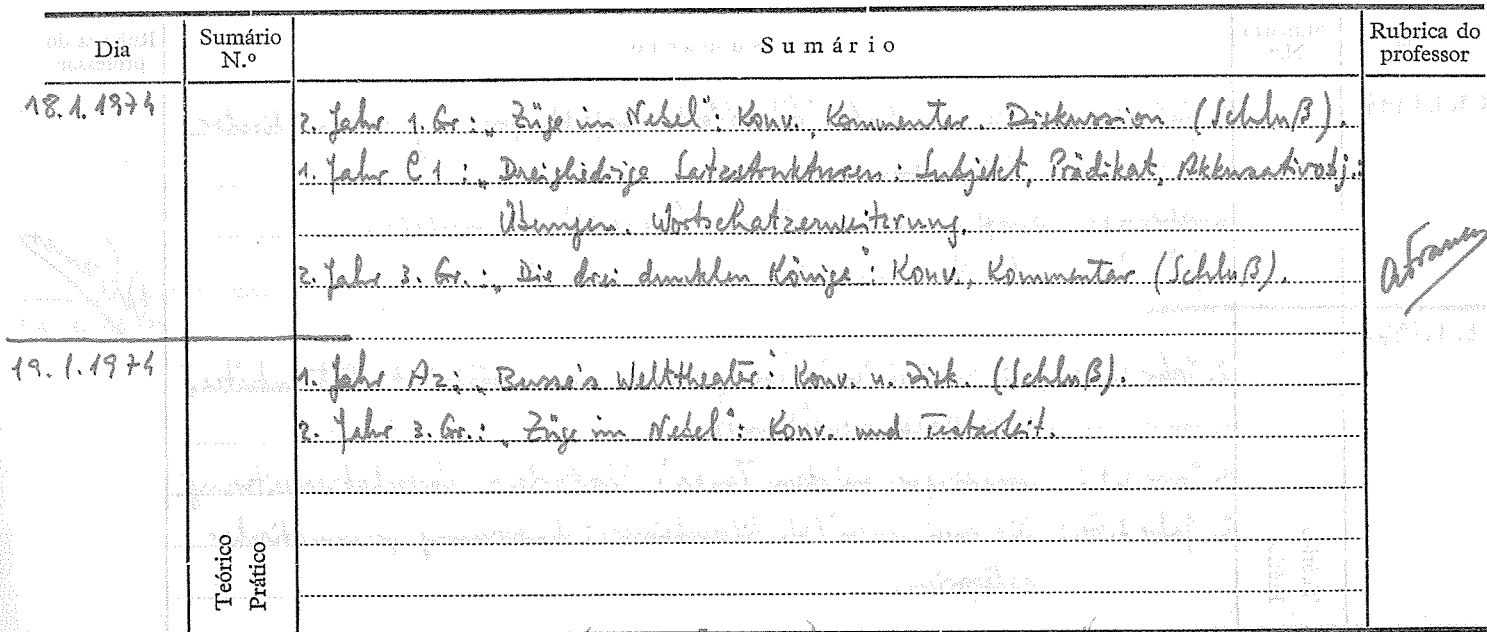 Dia Sumário N.º Sumário Rubrica do professor
18.1.1974 2. Jahr 1. Gr.: „Züge im Nebel“: Konv., Kommentar. Diskussion (Schluß).
1. Jahr C1: „Dreigliedrige Satzstrukturen: Subjekt, Prädikat, Akkusativobj.:
Übungen. Wortschatzerweiterung.
2. Jahr 3. Gr.: „Die drei dunklen Könige“: Konv., Kommentar (Schluß).
19.1.1974 1. Jahr A2: „Busse's Welttheater“: Konv. u. Disk. (Schluß).
2. Jahr 3. Gr.: „Züge im Nebel“: Konv. und Textarbeit.
Teórico
Prático